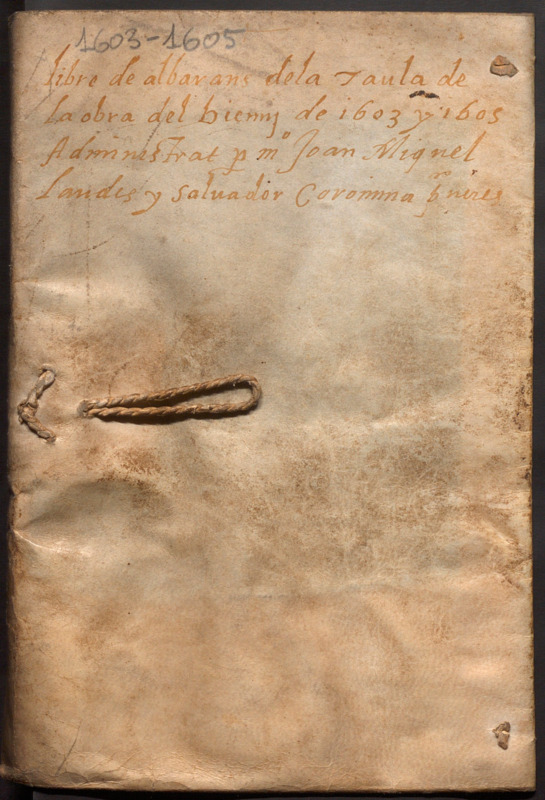 1603-1605
libre de albarans dela Taula de
la obra del bienni de 1603 y 1605
Administrat p mº Joan Miquel
Landes y Salvador Coromina